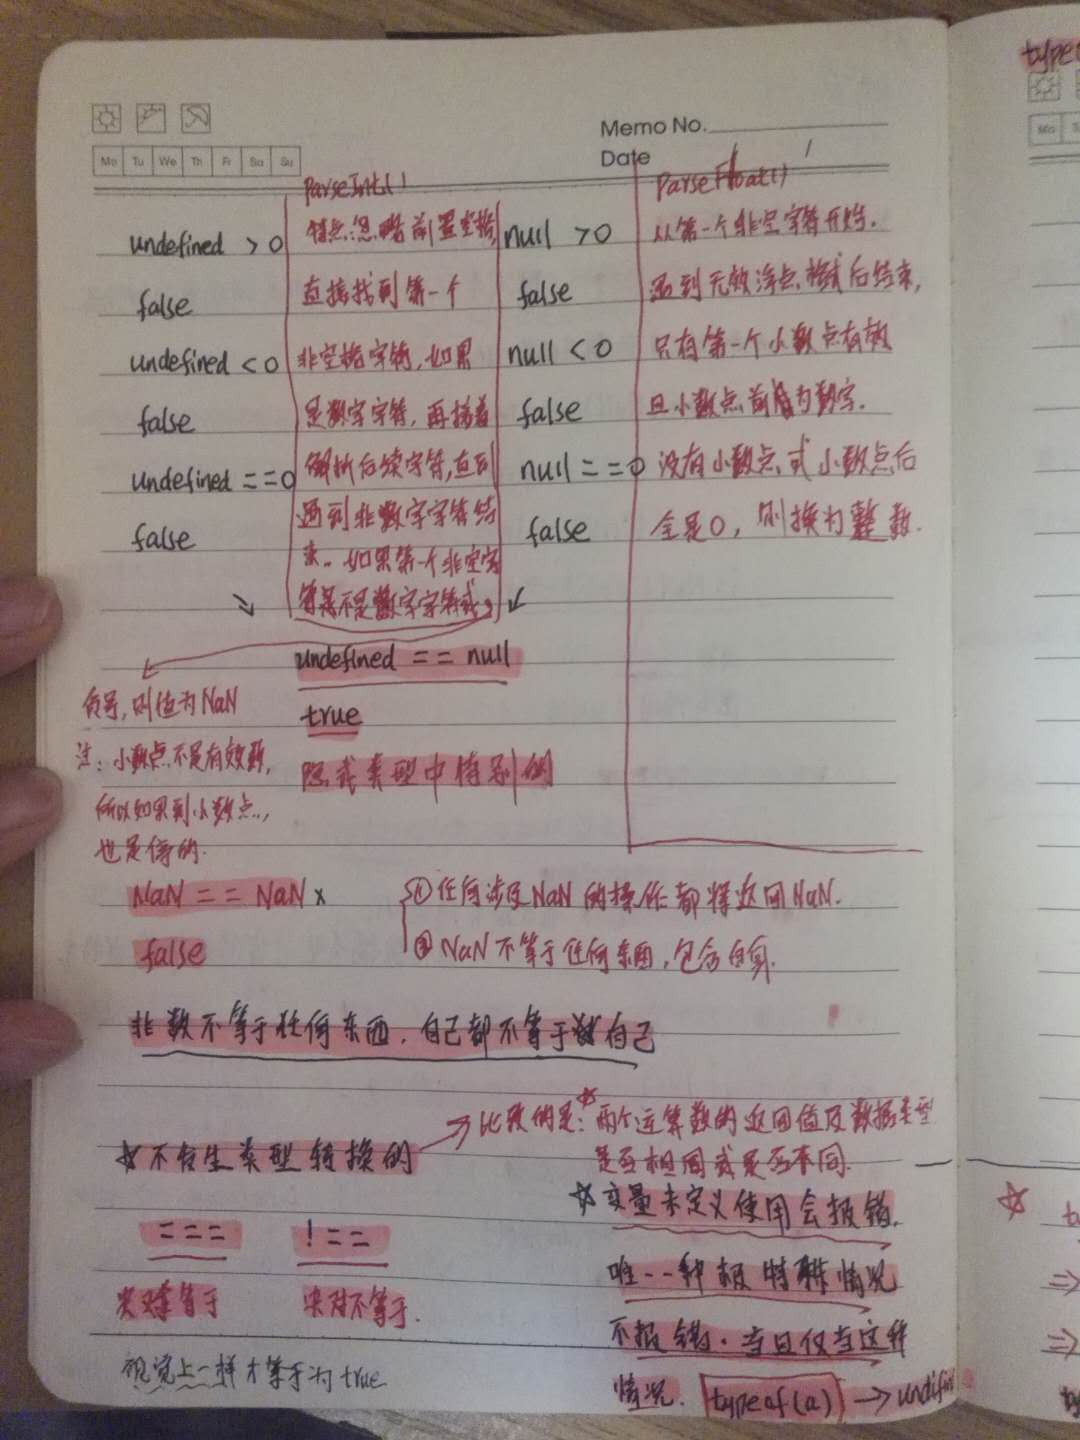 Memo No.
Date / /
Mo Tu We Th Fr Sa Su
undefined > 0
false
undefined < 0
false
undefined == 0
false
parseInt()
特点:忽略前置空格,
直接找到第一个
非空格字符,如果
是数字字符,再接着
解析后续字符,直到
遇到非数字字符结
束。如果第一个非空字
符是不是数字字符或
负号,则值为NaN
注:小数点不是有效数,
所以如果到小数点,
也是停的.
null > 0
false
null < 0
false
null == 0
false
parseFloat()
从第一个非空字符开始.
遇到无效浮点格式后结束,
只有第一个小数点有效
且小数点前为数字.
没有小数点或小数点后
全是0,则换为整数.
undefined == null
true
隐式类型中特别的
NaN == NaN x
false
①任何涉及NaN的操作都将返回NaN.
②NaN不等于任何东西,包含自身.
非数不等于任何东西.自己都不等于自己
☆不发生类型转换的
→比较的是:☆两个运算数的返回值及数据类型
是否相同或是否不同.
=== !==
绝对等于 决对不等于.
视觉上一样才等于为true
☆变量未定义使用会报错.
唯一一种极特殊情况
不报错.当且仅当这种
情况. typeof(a) → undifin
typeo
Mo